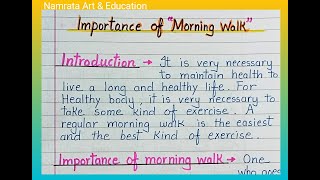 Namrata Art & Education
Importance of "Morning Walk"
Introduction → It is very necessary
to maintain health to
live a long and healthy life. For
Healthy body, it is very necessary to
take some kind of exercise. A
regular morning walk is the easiest
and the best kind of exercise.
Importance of morning walk → One
who goes